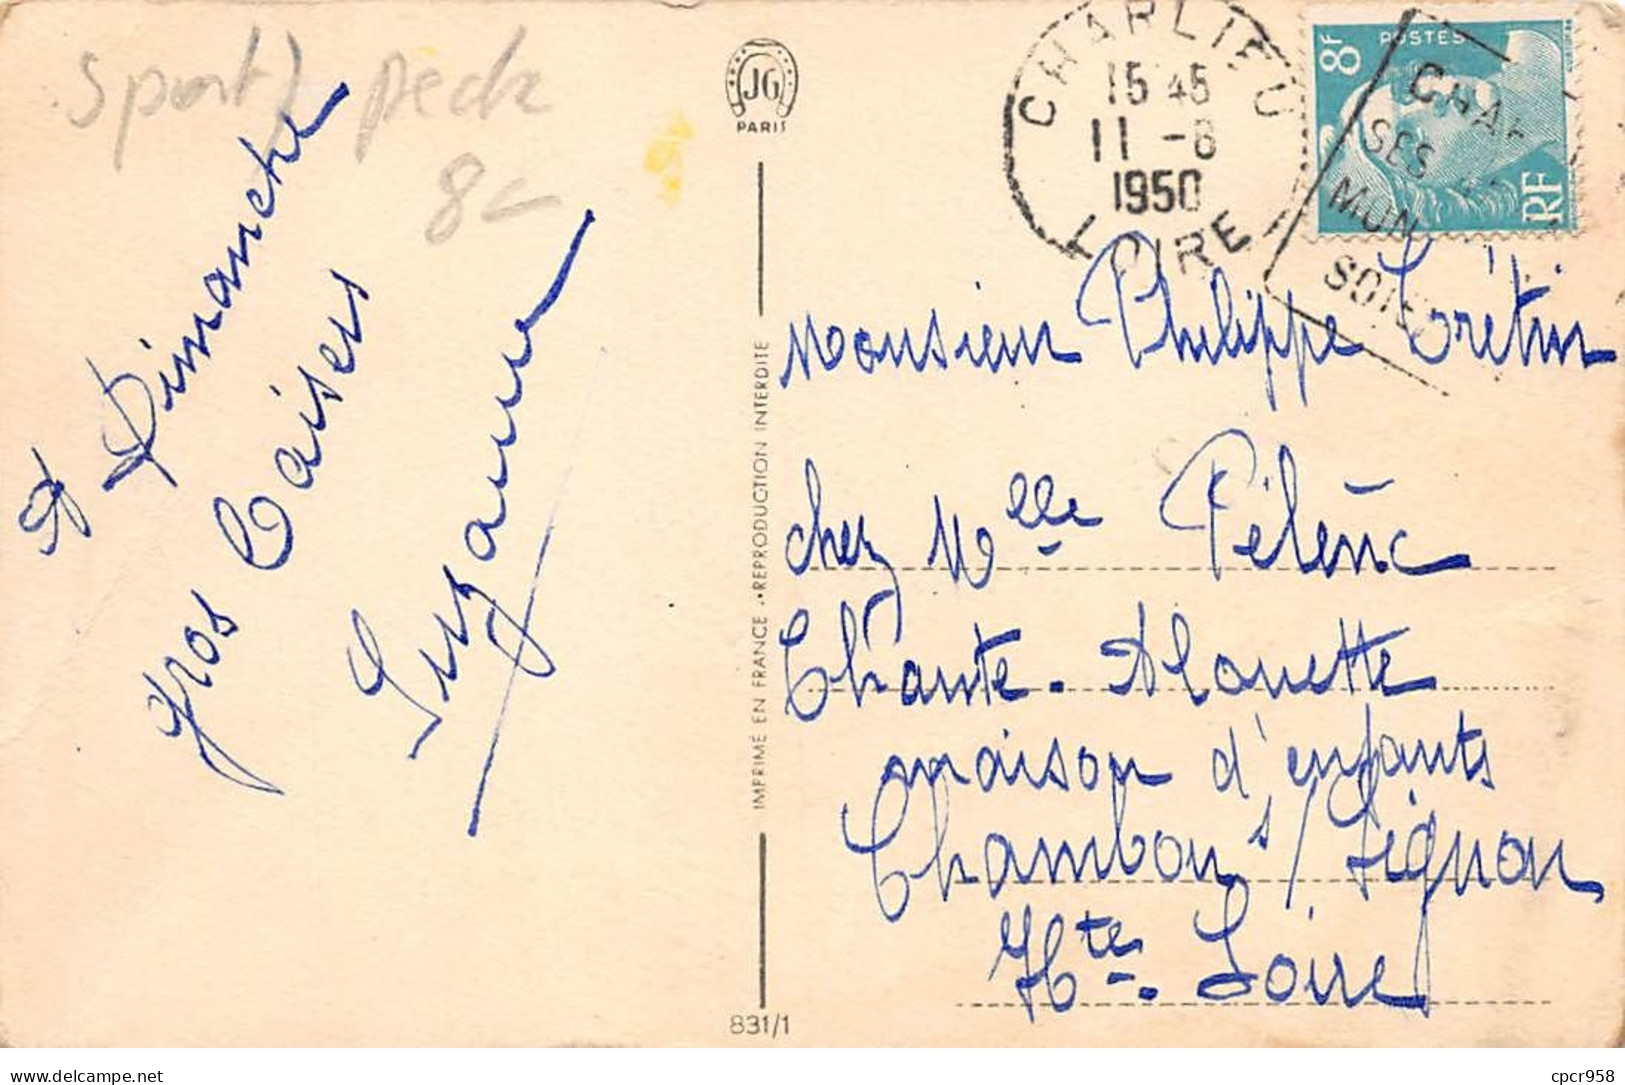 Sports pêche
8
à Dimanche
gros baisers
Suzanne
JG
PARIS
IMPRIMÉ EN FRANCE - REPRODUCTION INTERDITE
831/1
CHARLIEU
15 45
11 -8
1950
LOIRE
8F POSTES
RF
SES
MON
SOIE
Monsieur Philippe Crétin
chez Melle Pélenc
Chante-Alouette
maison d'enfants
Chambon s/ Lignon
Hte-Loire
Delcampe.net
cpcr958